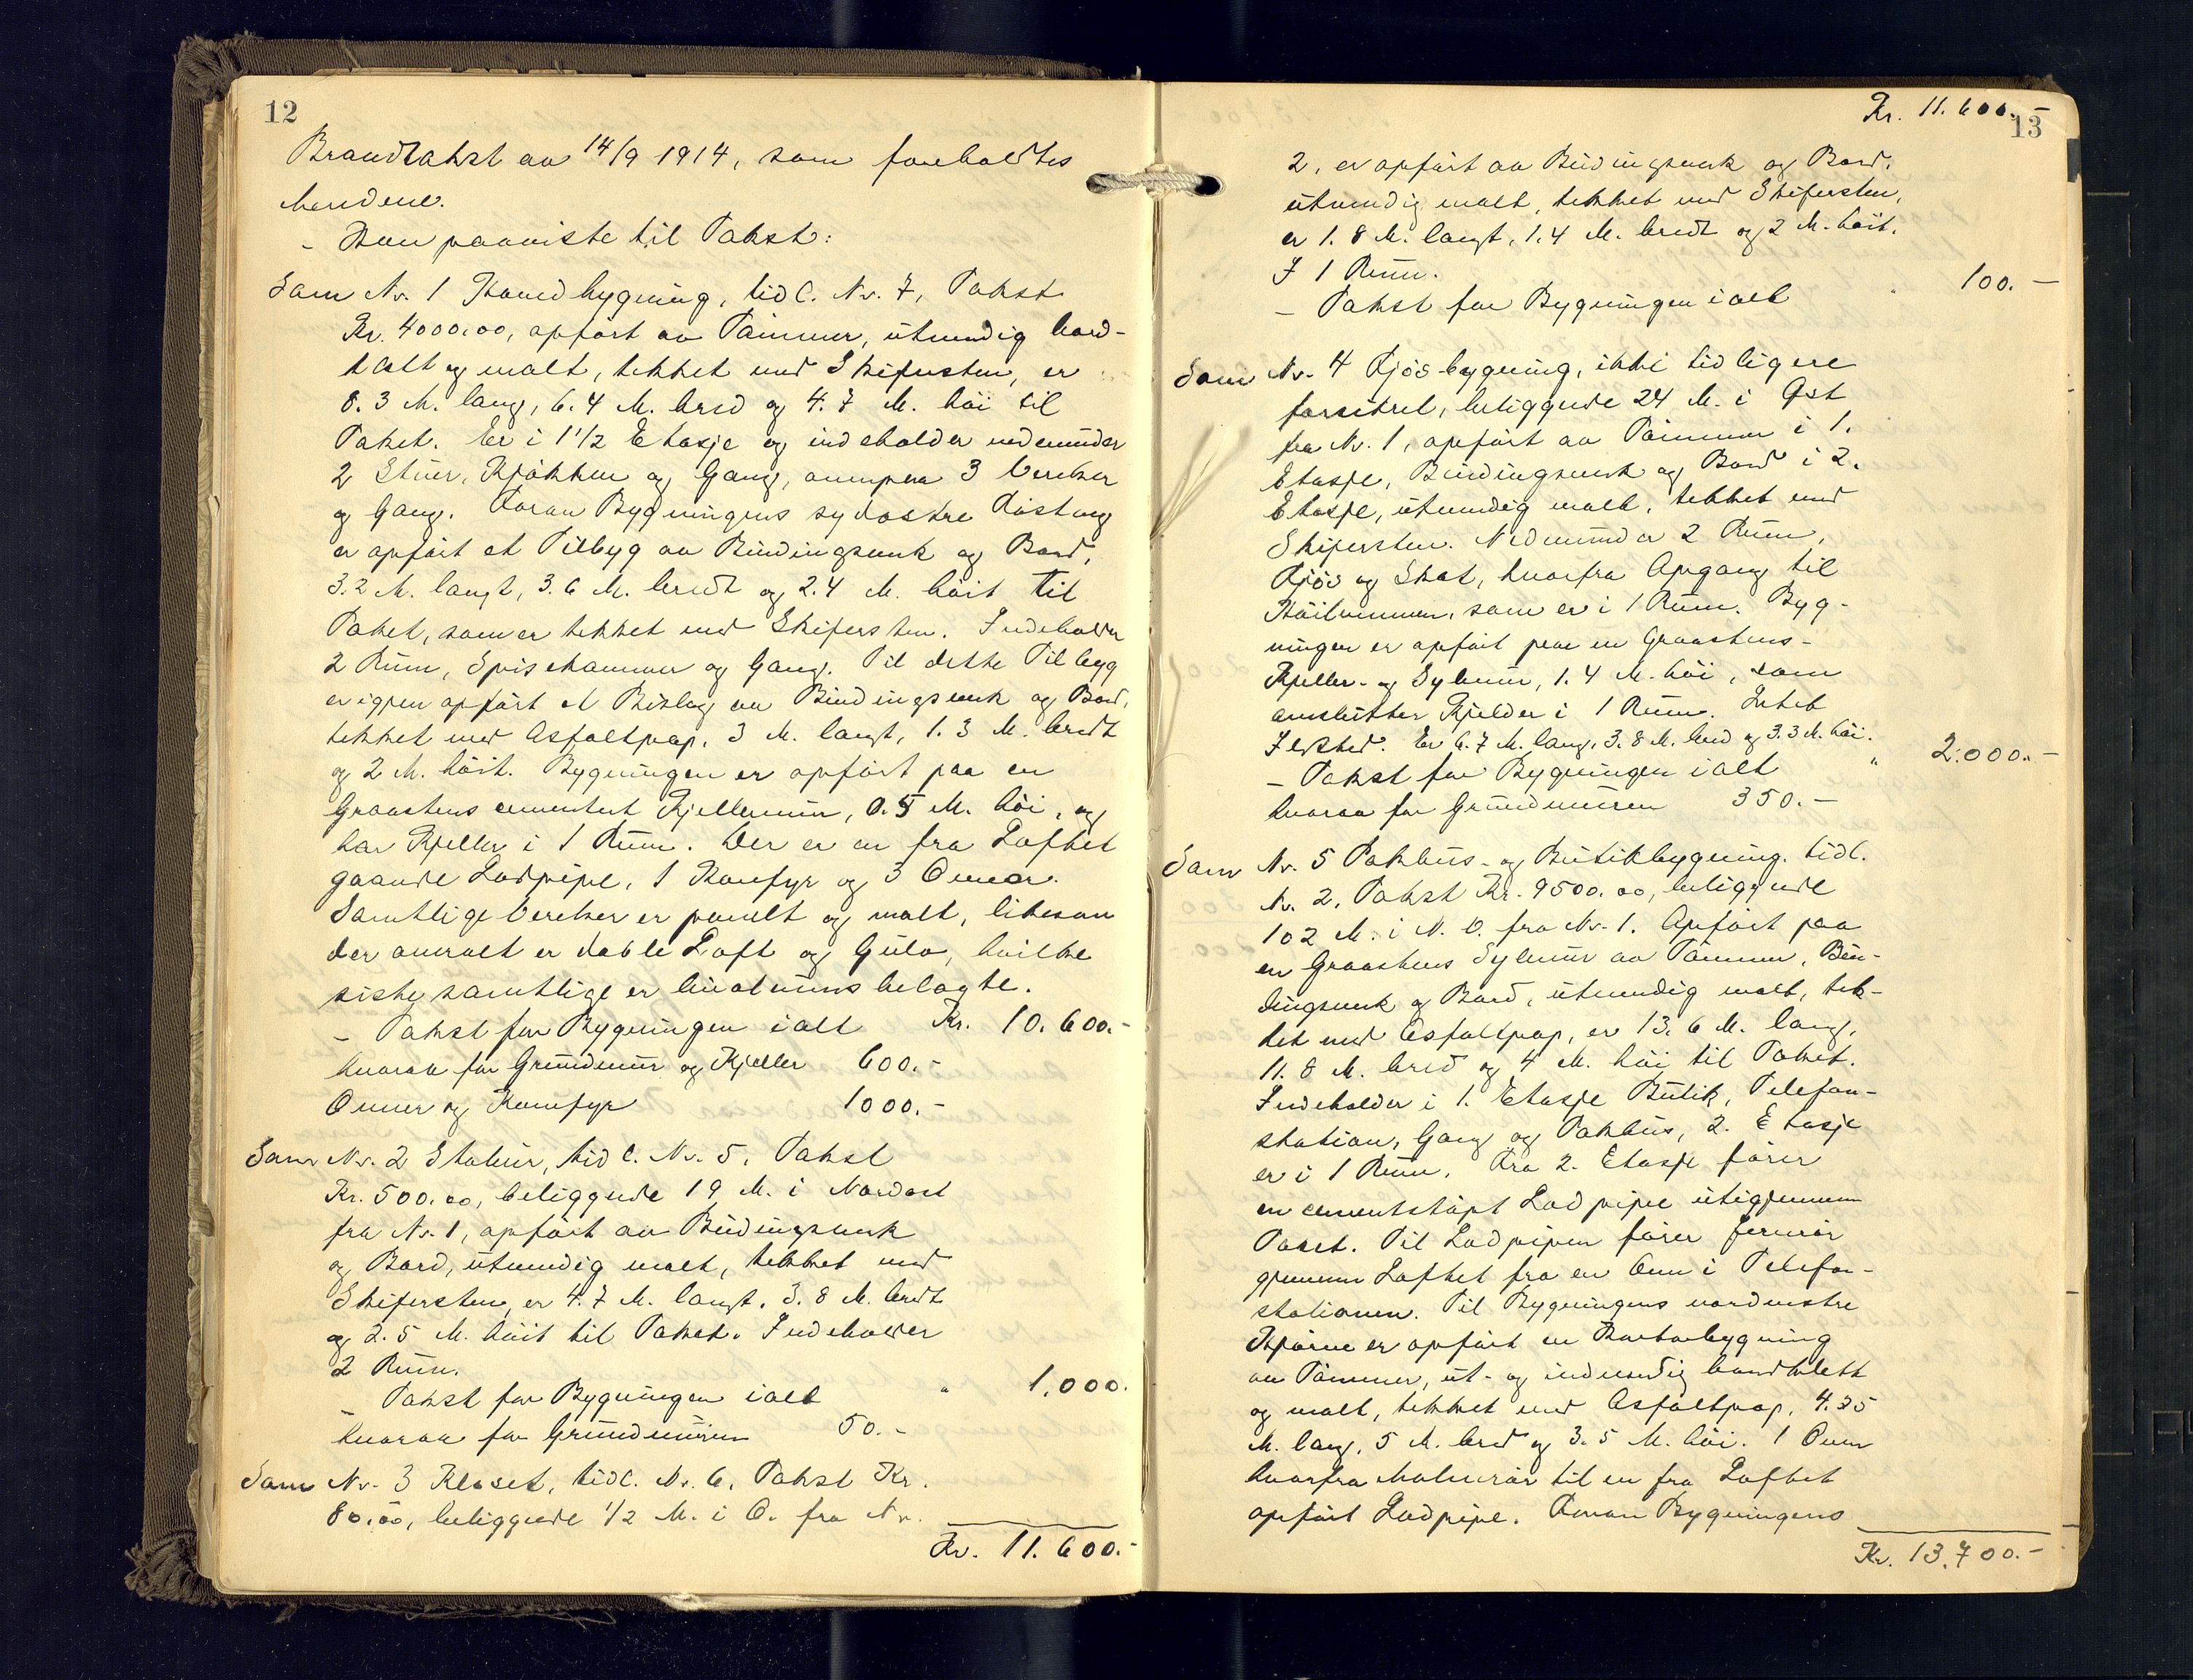 12
Brandtakst av 14/9 1914, som foreholdtes
Mændene.
- Han paaviste til Takst:
Som Nr. 1 Hovedbygning, tidl. Nr. 7, Takst
Kr. 4000.00, opført av Tømmer, utvendig bord-
klætt og malt, tækket med Skifersten, er
8.3 M. lang, 6.4 M. bred og 4.7 M. høi til
Taket. Er i 1 1/2 Etasje og indeholder nedenunder
2 Stuer, Kjøkken og Gang, ovenpaa 3 Værelser
og Gang. Foran Bygningens sydøstre Røstveg
er opført et Tilbyg av Bindingsverk og Bord,
3.2 M. langt, 3.6 M. bredt og 2.4 M. høit til
Taket, som er tækket med Skifersten. Indeholder
2 Rum, Spisekammer og Gang. Til dette Tilbyg
er igjen opført et Bislag av Bindingsverk og Bord,
tækket med Asfaltpap, 3 M. langt, 1.3 M. bredt
og 2 M. høit. Bygningen er opført paa en
Graastens cementert Kjellermur, 0.5 M. høi, og
har Kjeller i 1 Rum. Der er en fra Loftet
gaaende Lodpipe, 1 Komfyr og 3 Ovner.
Samtlige Værelser er panelt og malt, likesom
der overalt er doble Loft og Gulv, hvilke
siste samtlige er linoleumsbelagte.
- Takst for Bygningen ialt Kr. 10.600.-
hvorav for Grundmur og Kjeller 600.-
Ovner og Komfyr 1000.-
Som Nr. 2 Stabur, tidl. Nr. 5, Takst
Kr. 500.00, beliggende 19 M. i Nordost
fra Nr. 1, opført av Bindingsverk
og Bord, utvendig malt, tækket med
Skifersten, er 4.7 M. langt, 3.8 M. bredt
og 2.5 M. høit til Taket. Indeholder
2 Rum.
- Takst for Bygningen ialt " 1.000.
hvorav for Grundmuren 50.-
Som Nr. 3 Kloset, tidl. Nr. 6, Takst Kr.
80.00, beliggende 1/2 M. i O. fra Nr.
Kr. 11.600.-
Kr. 11.600.-
13
2, er opført av Bindingsverk og Bord,
utvendig malt, tækket med Skifersten,
er 1.8 M. langt, 1.4 M. bredt og 2 M. høit.
I 1 Rum.
- Takst for Bygningen ialt " 100.-
Som Nr. 4 Fjøsbygning, ikke tidligere
forsikret, beliggende 24 M. i Øst
fra Nr. 1, opført av Tømmer i 1.
Etasje, Bindingsverk og Bord i 2.
Etasje, utvendig malt, tækket med
Skifersten. Nedenunder 2 Rum,
Fjøs og Skot, hvorfra Opgang til
Høilemmen, som er i 1 Rum. Byg-
ningen er opført paa en Graastens-
Kjeller- og Sylmur, 1.4 M. høi, som
omslutter Kjelder i 1 Rum. Intet
Ildsted. Er 6.7 M. lang, 3.8 M. bred og 3.3 M. høi.
- Takst for Bygningen ialt " 2.000.-
hvorav for Grundmuren 350.-
Som Nr. 5 Pakhus- og Butikbygning. tidl.
Nr. 2, Takst Kr. 9500.00, beliggende
102 M. i N.O. fra Nr. 1. Opført paa
en Graastens Sylmur av Tømmer, Bin-
dingsverk og Bord, utvendig malt, tæk-
ket med Asfaltpap, er 13.6 M. lang,
11.8 M. bred og 4 M. høi til Taket.
Indeholder i 1. Etasje Butik, Telefon-
station, Gang og Pakhus, 2. Etasje
er i 1 Rum. Fra 2. Etasje fører
en cementstøpt Lodpipe utigjennem
Taket. Til Lodpipen fører Jernrør
gjennem Loftet fra en Ovn i Telefon-
stationen. Til Bygningens nordvestre
Hjørne er opført en Kontorbygning
av Tømmer, ut- og indvendig bordklætt
og malt, tækket med Asfaltpap, 4.35
M. lang, 5 M. bred og 3.5 M. høi. 1 Ovn
hvorfra Malmrør til en fra Loftet
opført Lodpipe. Foran Bygningens
Kr. 13.700.-